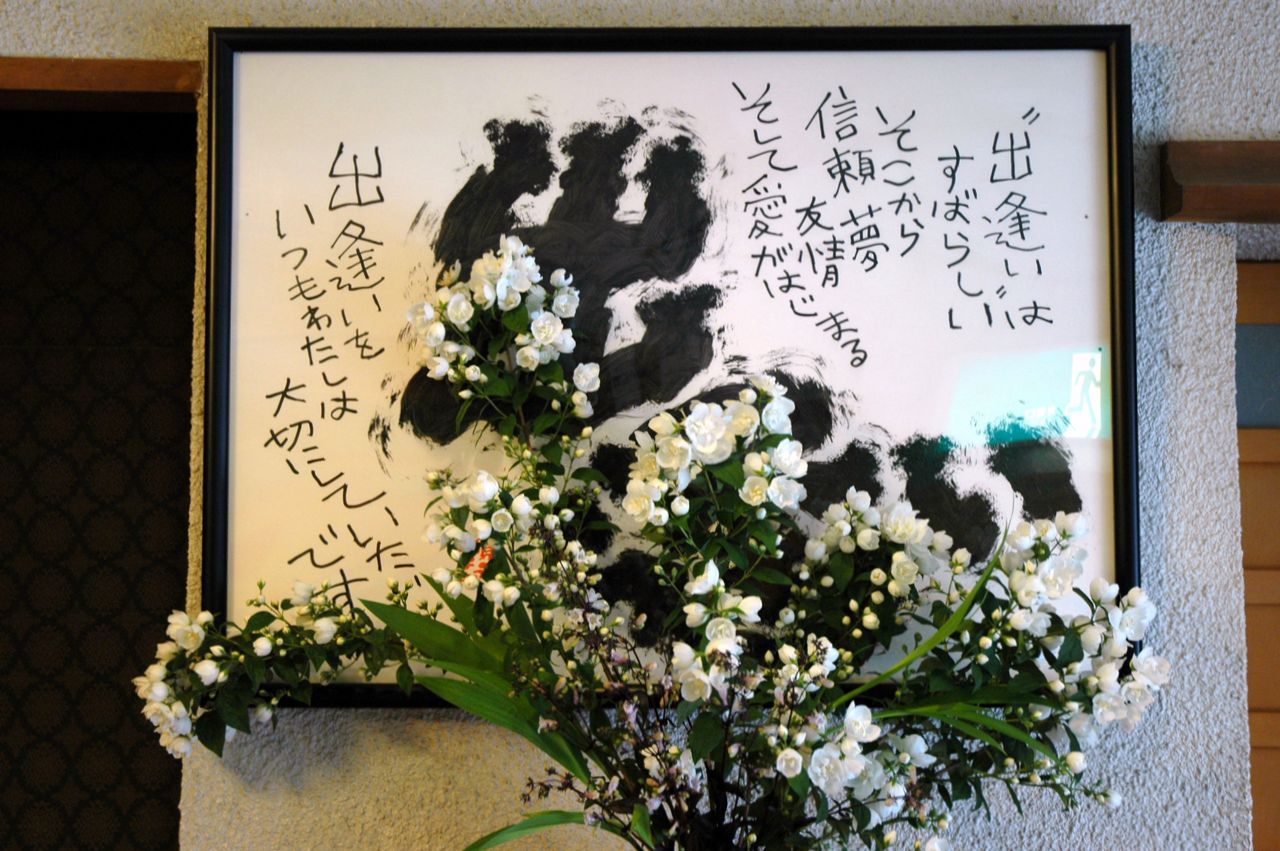 〝出逢い〟は
すばらしい
そこから
信頼 夢
友情
そして愛がはじまる
出逢いを
いつもわたしは
大切にしていたい
です